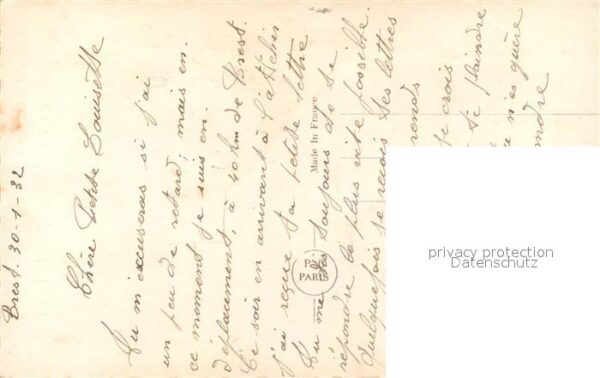 Brest. 30-1-32
Chère Petite Louisette
Tu m'excuseras si j'ai
un peu de retard, mais en
ce moment je suis en
déplacement, à 40 km de Brest.
Ce soir en arrivant à l'atelier
j'ai reçue ta petite lettre
Tu me dis toujours de te
répondre le plus vite possible.
Quelquefois je reçois tes lettres
prends
je crois
te plaindre
n'es guère
Made in France
PC
PARIS
privacy protection
Datenschutz